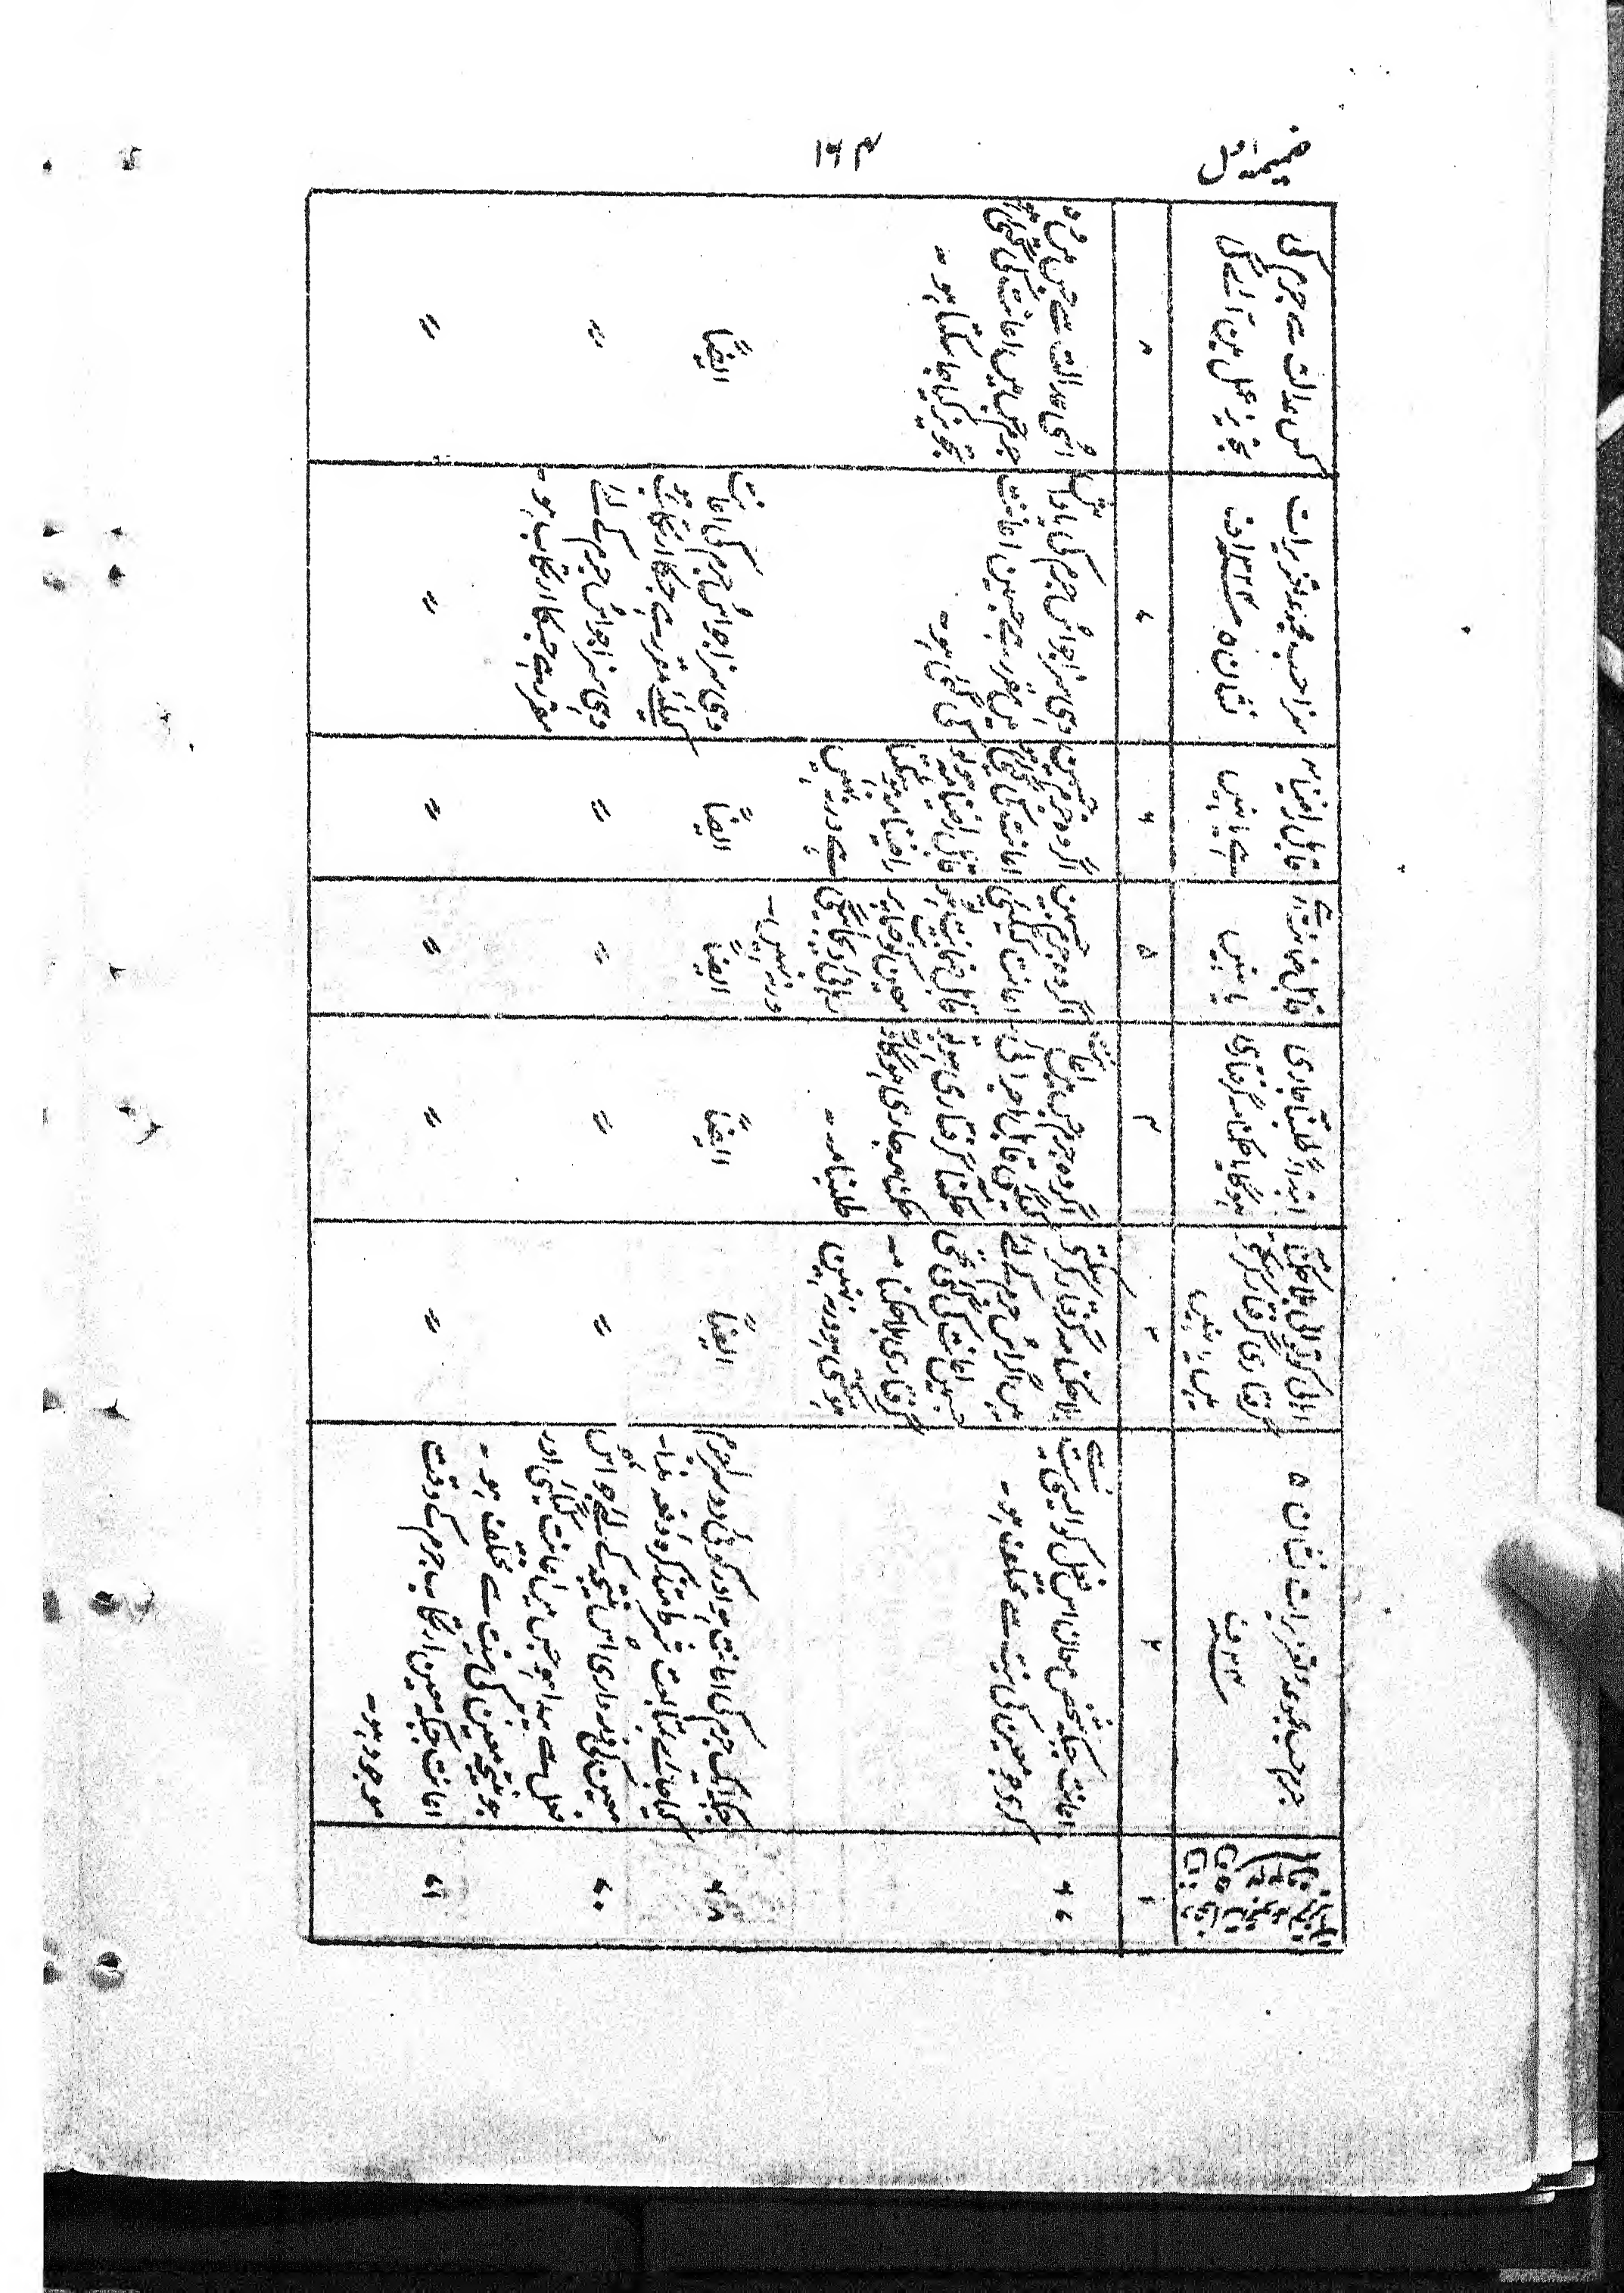 ضمیمہ اول
۱۶۴
دفعات
جرم حسب مجموعہ تعزیرات نشان ۵
سنہ ۱۳۲۴ف
اہالی کوتوالی بلا حکمنامہ
گرفتاری گرفتار کرسکتے
ہیں یا نہیں
ابتداءً طلبنامہ جاری
ہوگا یا حکمنامہ گرفتاری
قابل ضمانت ہے
یا نہیں
قابل راضینامہ
ہے یا نہیں
سزا حسب مجموعہ تعزیرات
نشان ۵ سنہ ۱۳۲۴ف
کس عدالت سے جرم کی
تجویز عمل میں آئے گی
۱
۲
۳
۴
۵
۶
۷
۸
۶۷
اعانت جبکہ شخص معان اس فعل کو ایسی نیت سے
کرے جو معین کی نیت سے مختلف ہو۔
بلا حکمنامہ گرفتار کرسکتے
ہیں اگر اس جرم کے لئے
جسمیں اعانت کی گئی
گرفتاری بلا حکمنامہ
ہوسکتی ہو ورنہ نہیں
اگر وہ جرم جس میں اعانت
کی گئی قابل اجرائی
حکمنامہ گرفتاری ہو تو
حکمنامہ جاری ہوگا ورنہ
طلبنامہ۔
اگر وہ جرم جسمیں
اعانت کیگئی
قابل ضمانت ہو تو
معین کو ضمانت پر
رہائی دی جائیگی
ورنہ نہیں۔
اگر وہ جرم جسمیں
اعانت کی گئی
قابل راضینامہ ہو تو
راضینامہ ہوسکتا
ہے ورنہ نہیں
وہی سزا جو اس جرم کی پاداش
میں مقرر ہے جسمیں اعانت
کی گئی ہو۔
اسی عدالت سے جس میں اس
جرم جس میں اعانت کی گئی ہو
تجویز کیا جاسکتا ہو۔
۶۸
جبکہ ایک جرم کی اعانت ہو اور کوئی دوسرا جرم
کیا جائے بہ تابعیت شرط متذکرہ دفعہ ہذا۔
ایضاً
ایضاً
ایضاً
ایضاً
وہی سزا جو اس جرم کی اعانت
کیلئے مقرر ہے جسکا ارتکاب ہو
ایضاً
۷۰
معین کی ذمہ داری اس نتیجہ کے لئے جو اس
فعل سے پیدا ہو جس میں اعانت کیگئی اور
جو نتیجہ معین کی نیت سے مختلف ہو۔
〃
〃
〃
〃
وہی سزا جو اس جرم کے لئے
مقرر ہے جسکا ارتکاب ہو۔
〃
۷۱
اعانت جبکہ معین ارتکاب جرم کے وقت
موجود ہو۔
〃
〃
〃
〃
〃
〃